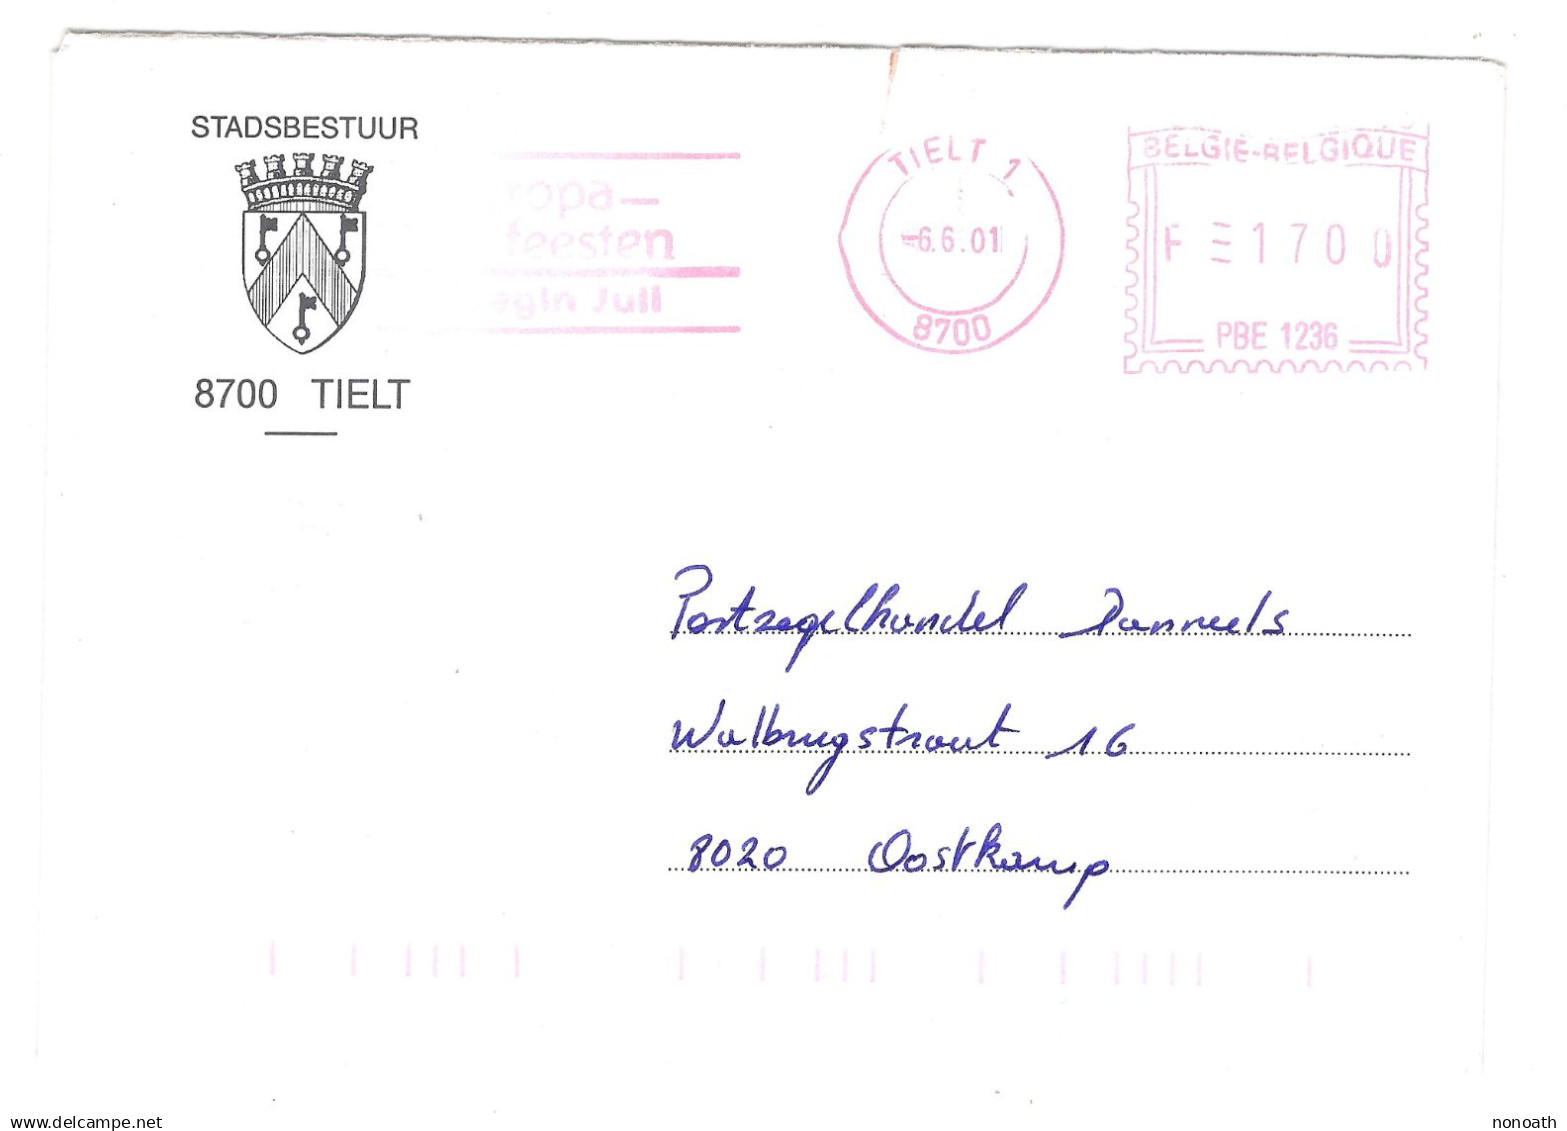 STADSBESTUUR
8700 TIELT
ropa-
feesten
egin Juli
TIELT 1
-6.6.01
8700
BELGIE-BELGIQUE
F 1700
PBE 1236
Postzegelhandel Danneels
Walbrugstraat 16
8020 Oostkamp
www.delcampe.net
nonoath